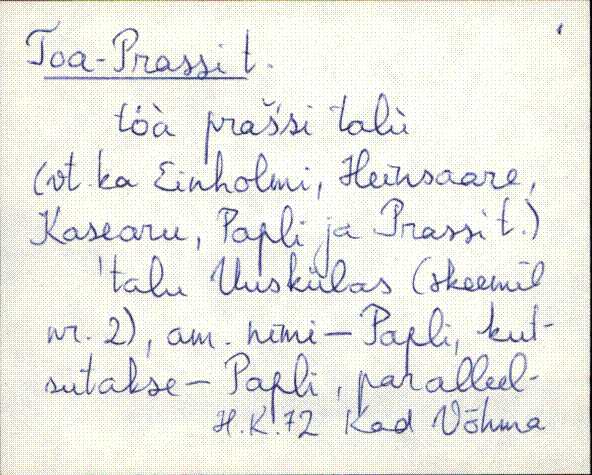 Toa-Prassi t.
tòà prašśi talù
(vt. ka Einholmi, Heinsaare,
Kasearu, Papli ja Prassi t.)
'talu Uuskülas (skeemil
nr. 2), am. nimi – Papli, kut-
sutakse – Papli, paralleel-
H.K. 72 Kad Võhma